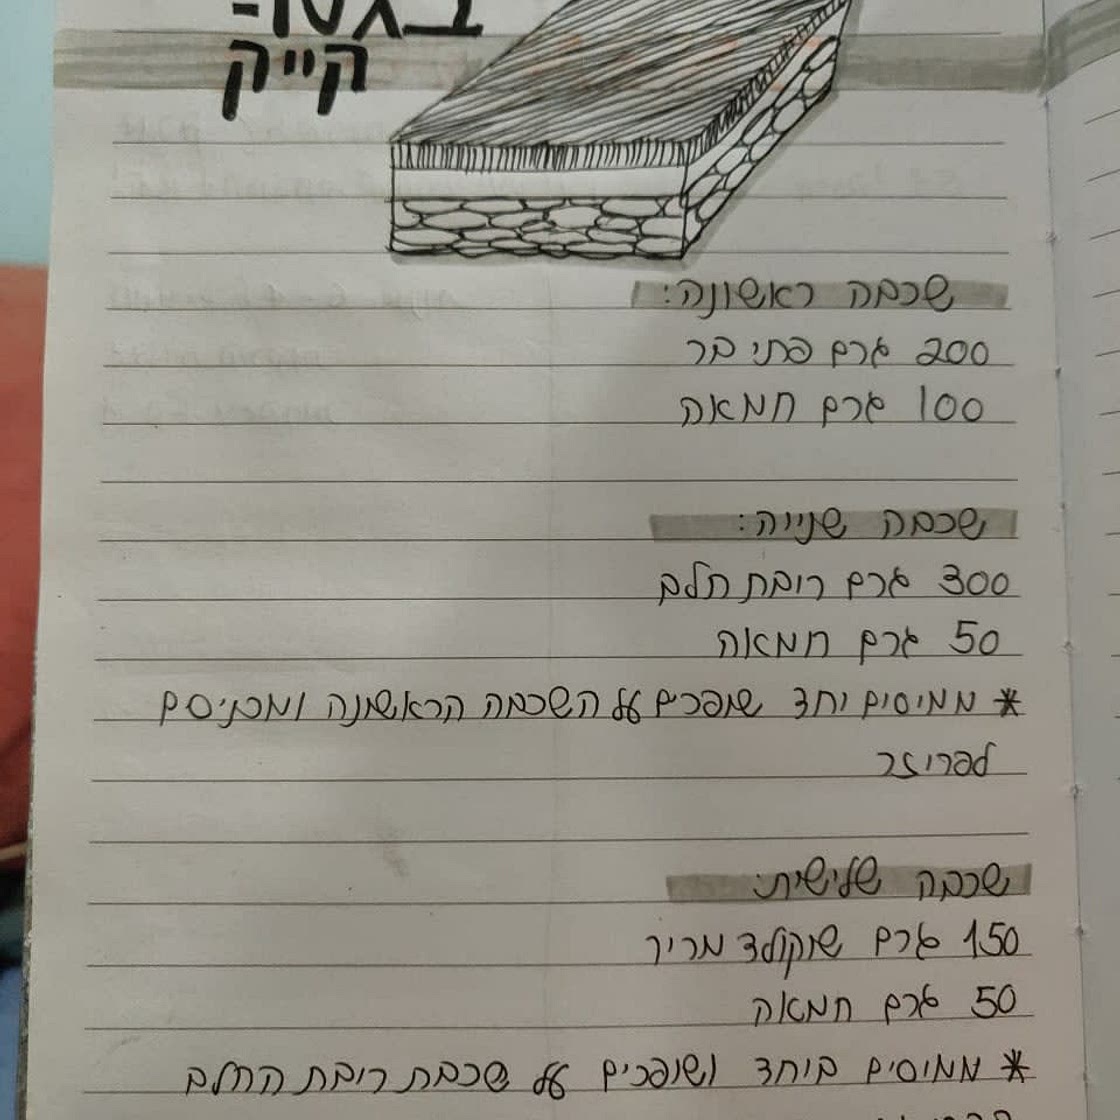 קייק
שכבה ראשונה:
200 גרם פתי בר
100 גרם חמאה
שכבה שנייה:
300 גרם ריבת חלב
50 גרם חמאה
* ממיסים יחד שופכים על השכבה הראשונה ומכניסים
לפריזר
שכבה שלישית:
150 גרם שוקולד מריר
50 גרם חמאה
* ממיסים ביחד ושופכים על שכבת ריבת החלב